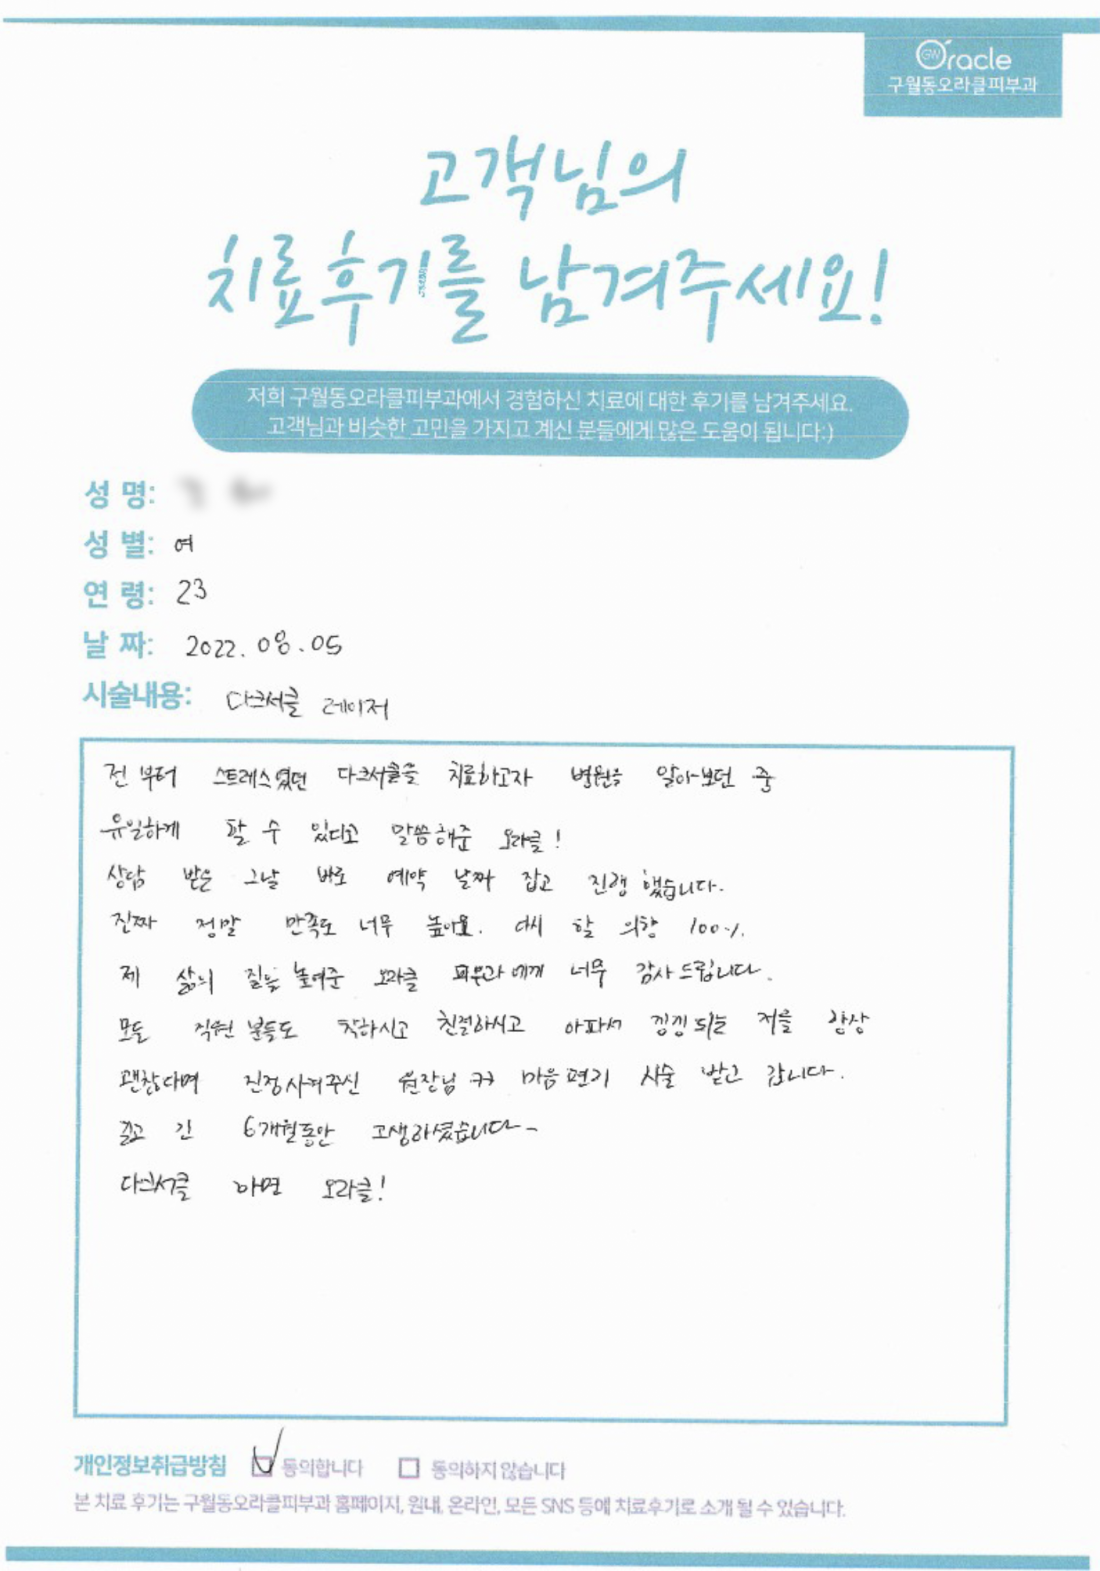 Oracle
구월동오라클피부과
고객님의
치료후기를 남겨주세요!
저희 구월동오라클피부과에서 경험하신 치료에 대한 후기를 남겨주세요.
고객님과 비슷한 고민을 가지고 계신 분들에게 많은 도움이 됩니다:)
성 명:
성 별: 여
연 령: 23
날 짜: 2022. 08. 05
시술내용: 다크서클 레이저
전 부터 스트레스였던 다크서클을 치료하고자 병원을 알아보던 중
유일하게 할 수 있다고 말씀해준 오라클!
상담 받은 그날 바로 예약 날짜 잡고 진행 했습니다.
진짜 정말 만족도 너무 높아요. 다시 할 의향 100%.
제 삶의 질을 높여준 오라클 피부과에게 너무 감사드립니다.
모든 직원 분들도 착하시고 친절하시고 아파서 낑낑되는 저를 항상
괜찮다며 진정시켜주신 원장님 ㅋㅋ 마음 편히 시술 받고 갑니다.
길고 긴 6개월동안 고생하셨습니다~
다크서클 하면 오라클!
개인정보취급방침 동의합니다 동의하지 않습니다
본 치료 후기는 구월동오라클피부과 홈페이지, 원내, 온라인, 모든 SNS 등에 치료후기로 소개 될 수 있습니다.